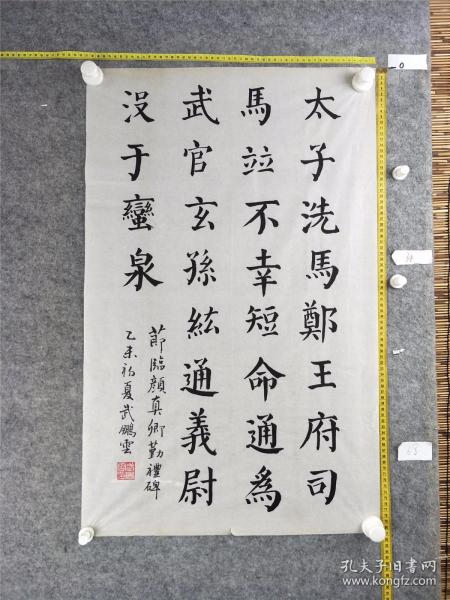 太子洗馬鄭王府司
馬竝不幸短命通為
武官玄孫紘通義尉
沒于蠻泉
節臨顏真卿勤禮碑
乙未初夏武鵬雲
孔夫子旧书网
www.kongfz.com